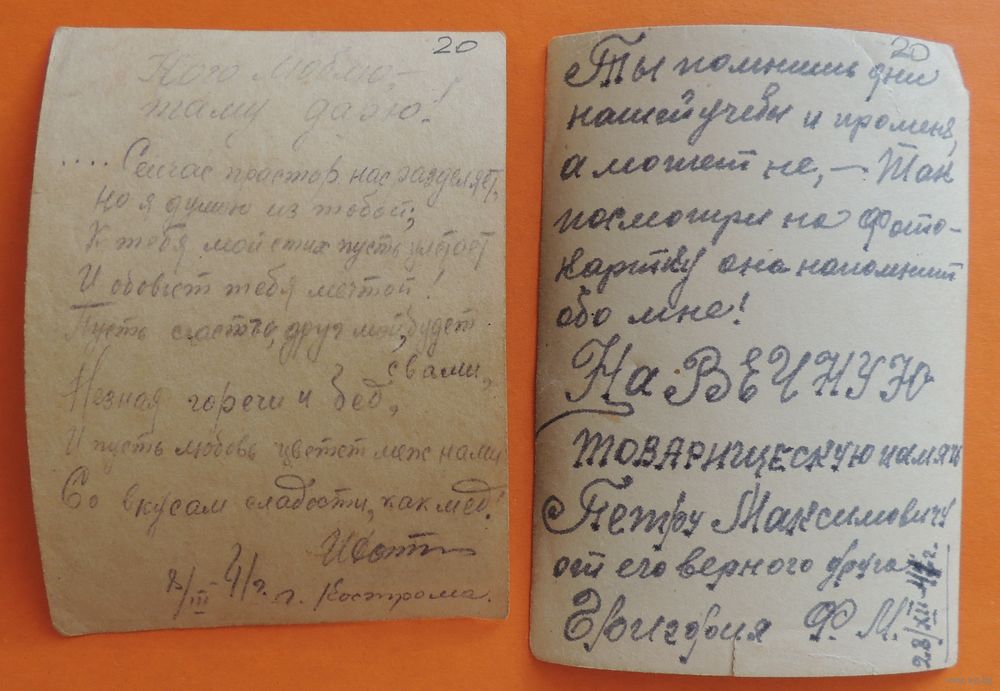 20
Кого люблю-
таму дарю!
.... Сейчас простор нас разделяет,
но я думаю из тобой;
К тебя мой стих пусть улетает
И обовьет тебя мечтой!
Пусть счастье, друг мой, будет
с вами,
Незная горечи и бед,
И пусть любовь цветет меж нами
Со вкусам сладости, как мёд!
8/III - 41 г. г. Кострома.
20
Ты помнишь дни
нашей учебы и про меня,
а может не, — Так
посмотри на фото-
картку она напомнит
обо мне!
На ВЕЧНУЮ
ТОВАРИЩЕСКУЮ память
Петру Максимовичу
от его верного друга
Ф. М.
28/XII-41г.